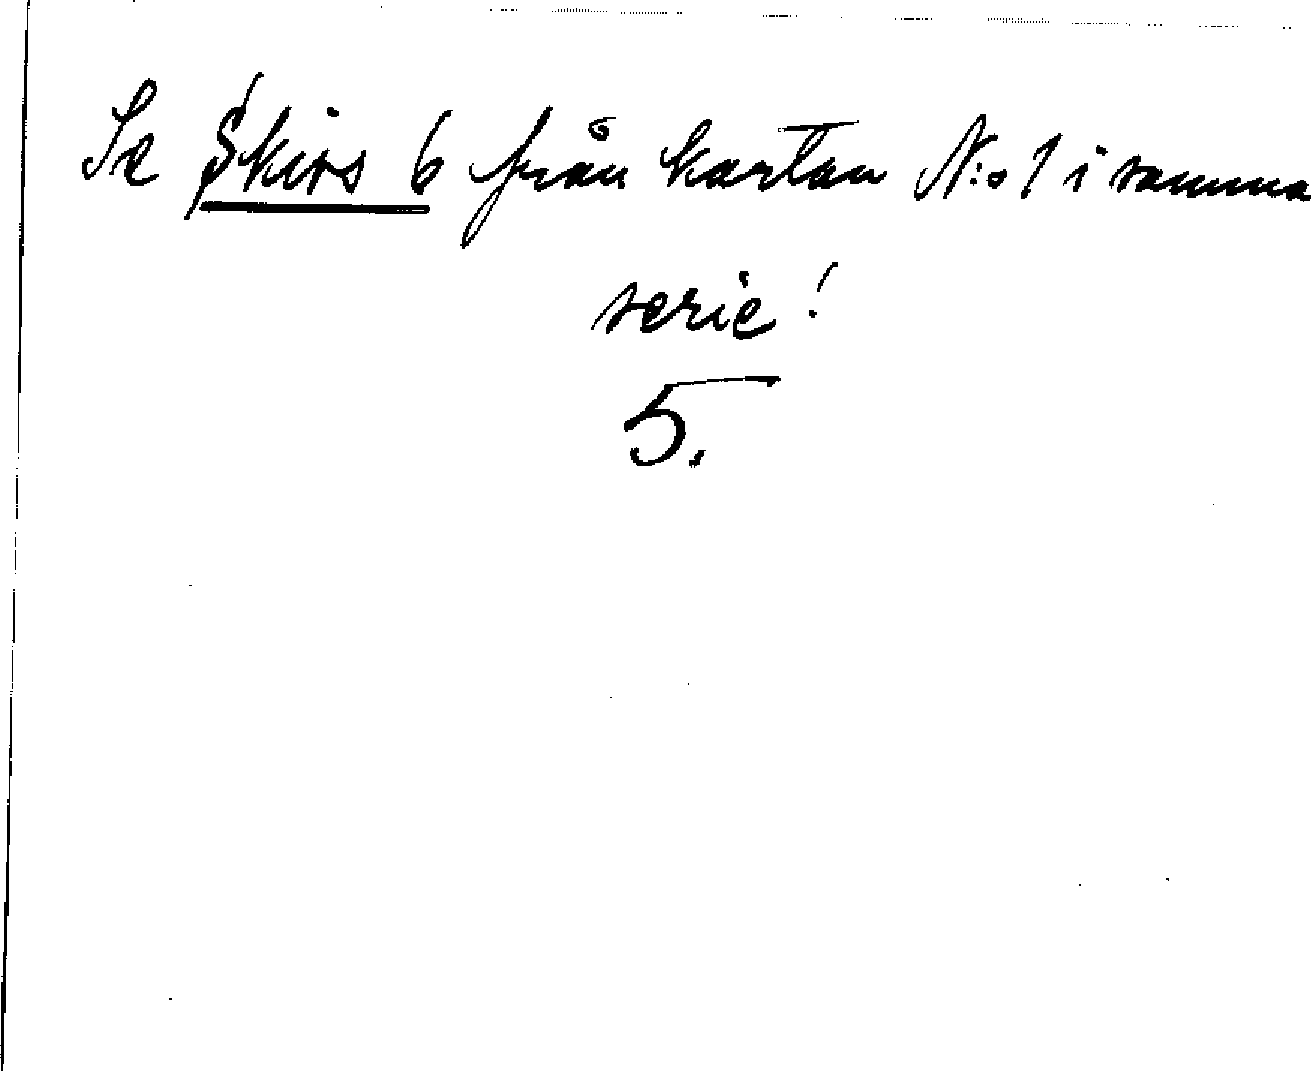 Se Skirs 6 från kartan N:o 1 i samma
serie!
5.